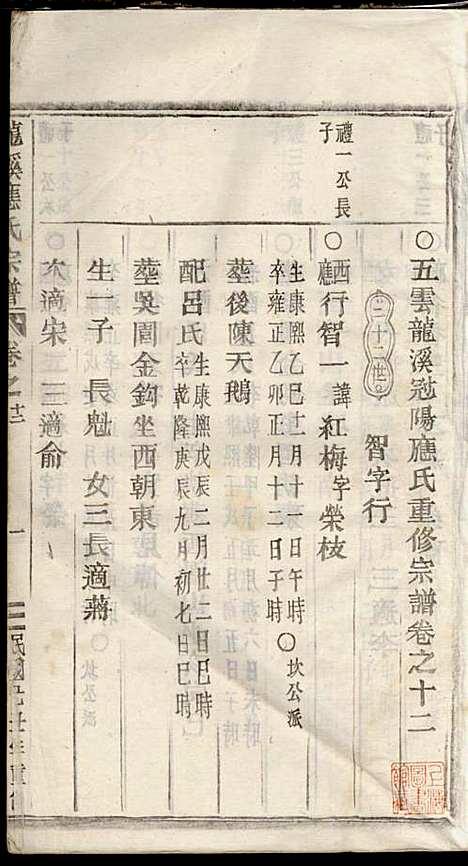 五雲龍溪冠陽應氏重修宗譜卷之十二
二十二世
智字行
禮一公長子
酉行智一諱紅梅字榮枝
應
生康熙乙巳十一月十日午時 坎公派
卒雍正乙卯正月十二日子時
塟後陳天鵝
配呂氏 生康熙戊辰二月廿二日巳時
卒乾隆庚辰九月初七日巳時
塟吳園金鈎坐西朝東
生一子 長魁 女三長適蔣
次適宋 三適俞
龍溪應氏宗譜 卷之十二 一 民國 年重修